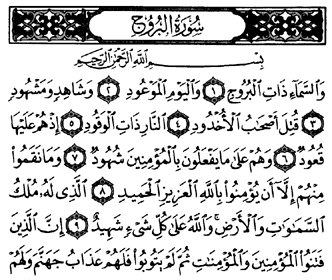 سُورَةُ الْبُرُوجِ
بِسْمِ اللَّهِ الرَّحْمَٰنِ الرَّحِيمِ
وَالسَّمَاءِ ذَاتِ الْبُرُوجِ ۝١ وَالْيَوْمِ الْمَوْعُودِ ۝٢ وَشَاهِدٍ وَمَشْهُودٍ
۝٣ قُتِلَ أَصْحَابُ الْأُخْدُودِ ۝٤ النَّارِ ذَاتِ الْوَقُودِ ۝٥ إِذْ هُمْ عَلَيْهَا
قُعُودٌ ۝٦ وَهُمْ عَلَىٰ مَا يَفْعَلُونَ بِالْمُؤْمِنِينَ شُهُودٌ ۝٧ وَمَا نَقَمُوا
مِنْهُمْ إِلَّا أَن يُؤْمِنُوا بِاللَّهِ الْعَزِيزِ الْحَمِيدِ ۝٨ الَّذِي لَهُ مُلْكُ
السَّمَاوَاتِ وَالْأَرْضِ ۚ وَاللَّهُ عَلَىٰ كُلِّ شَيْءٍ شَهِيدٌ ۝٩ إِنَّ الَّذِينَ
فَتَنُوا الْمُؤْمِنِينَ وَالْمُؤْمِنَاتِ ثُمَّ لَمْ يَتُوبُوا فَلَهُمْ عَذَابُ جَهَنَّمَ وَلَهُمْ